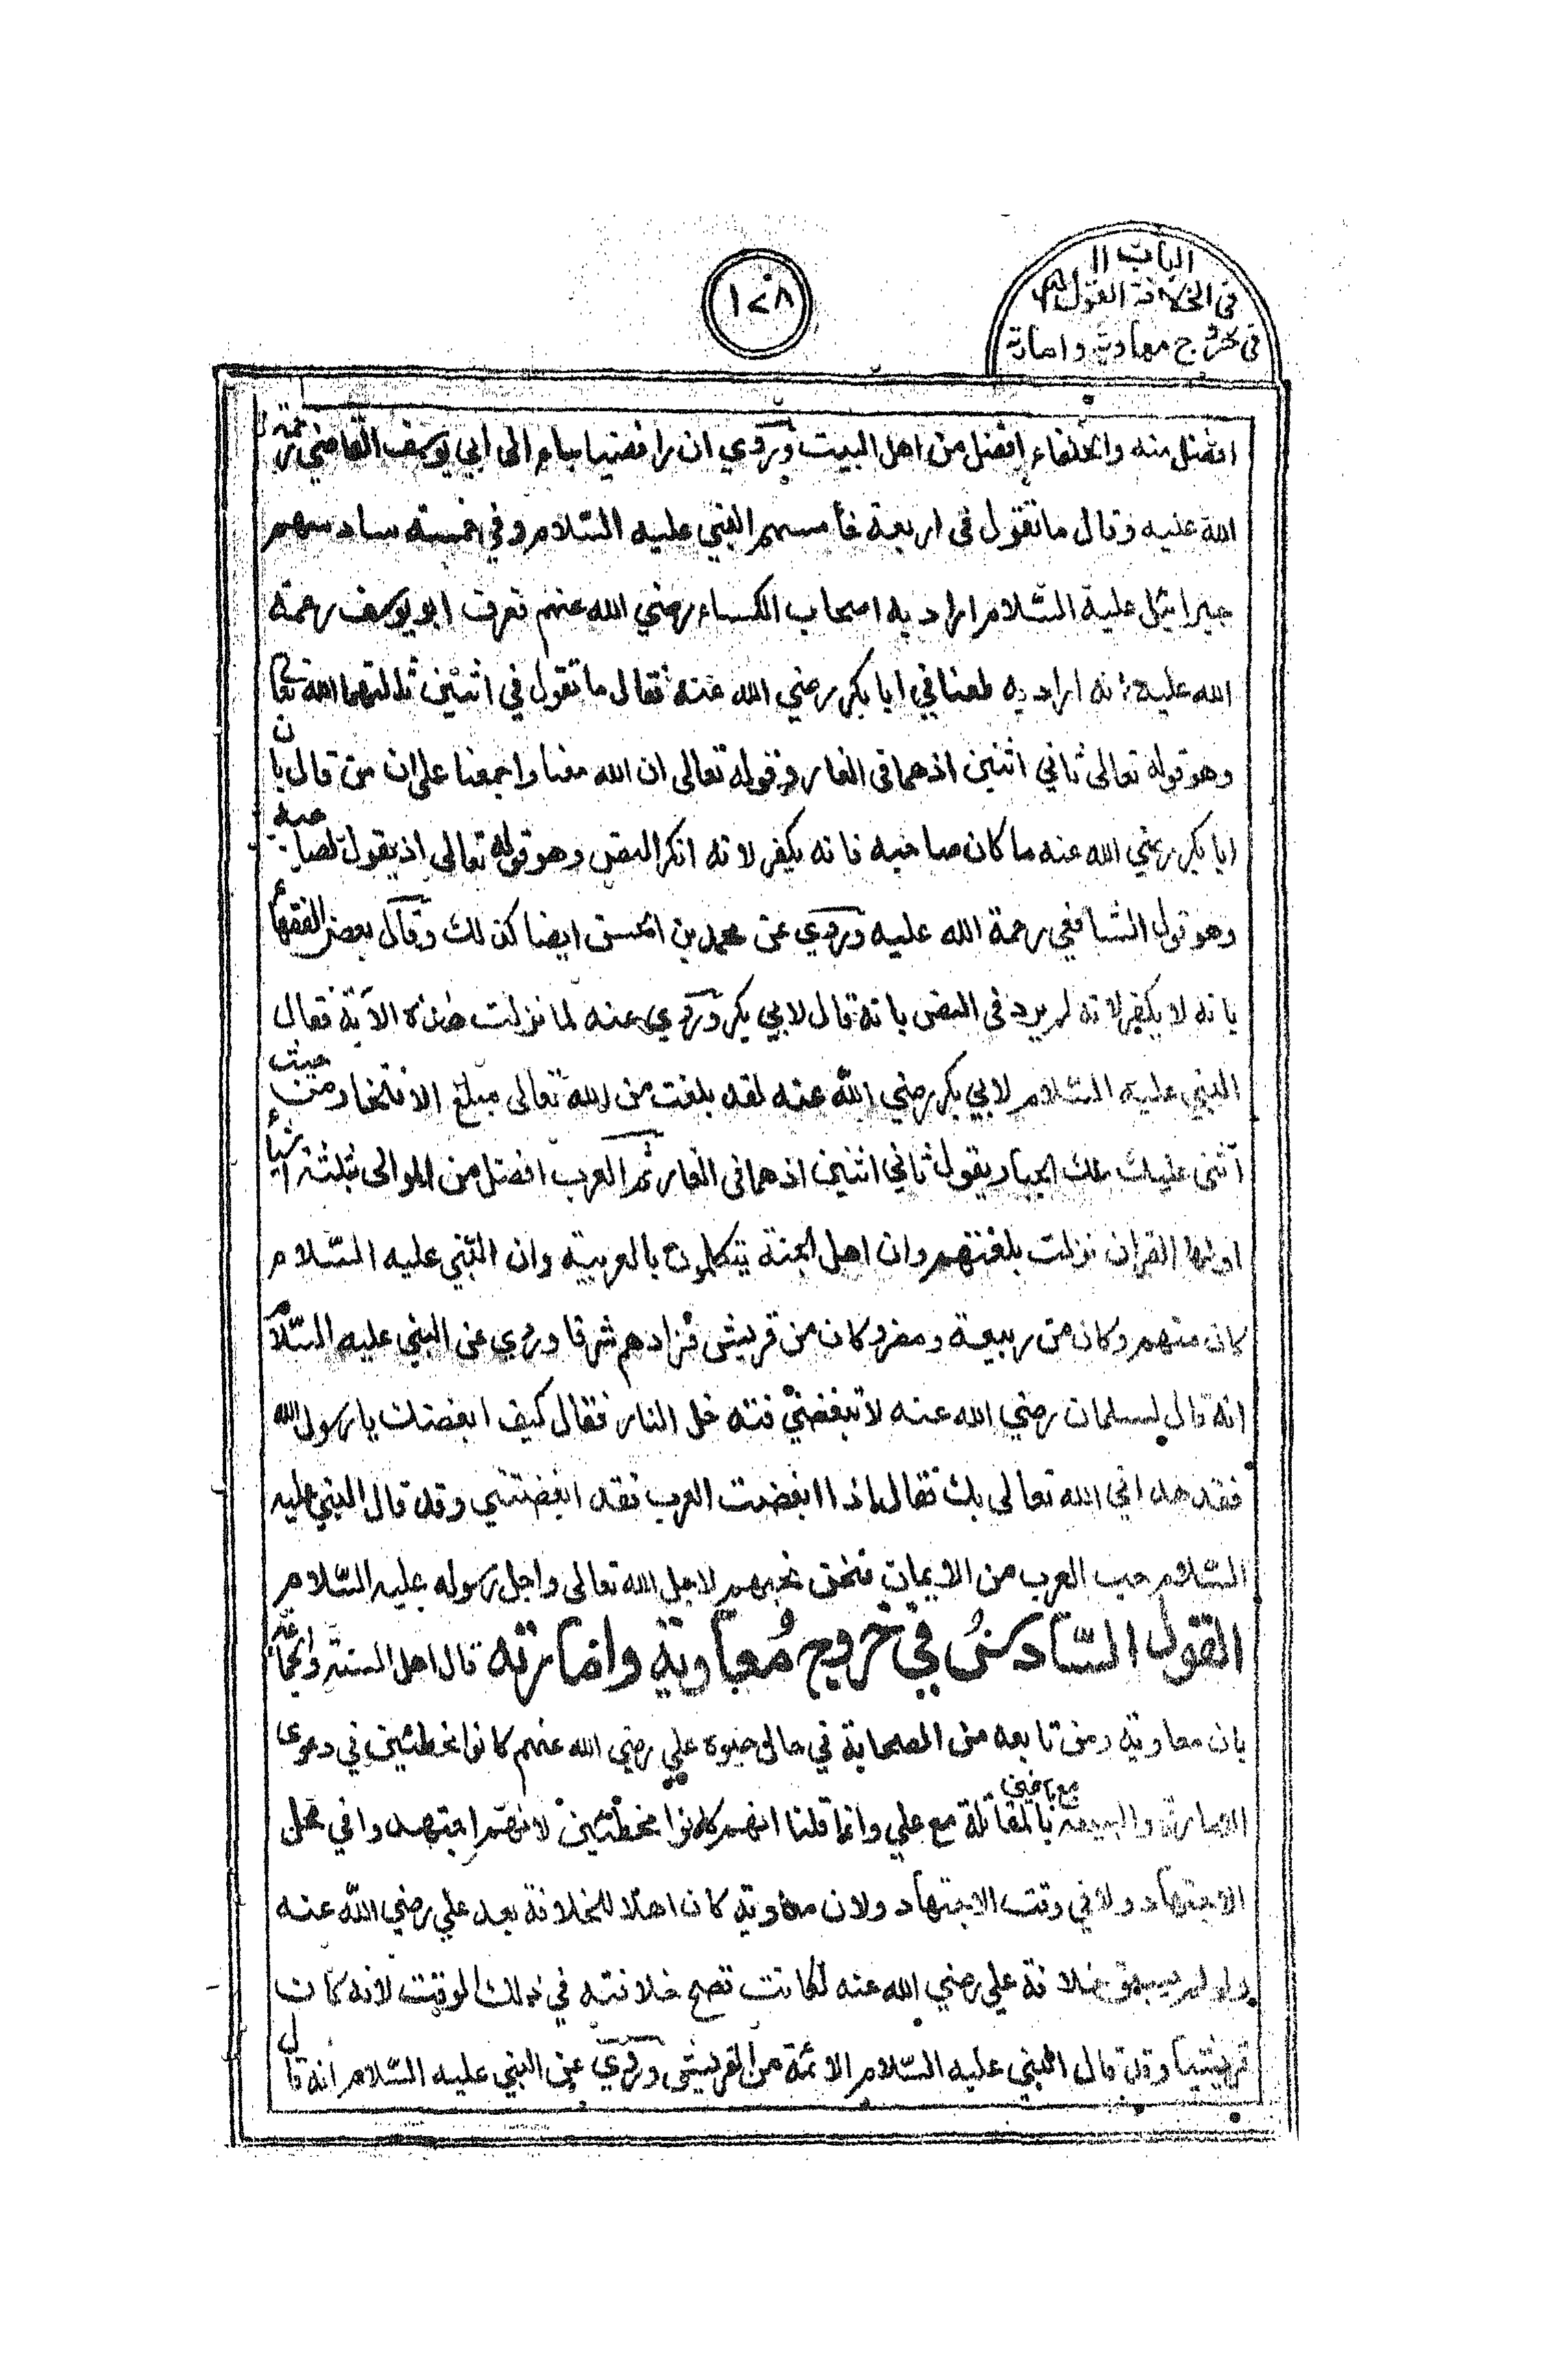 الباب ١١
في الخلافة القول
في خروج معاوية وامارته
١٢٨
افضل منه والخلفاء افضل من اهل البيت وروي ان رافضيا جاء الى ابي يوسف القاضي رحمة
الله عليه وقال ما تقول في اربعة خامسهم النبي عليه السّلام وفي خمسة سادسهم
جبرائيل عليه السّلام اراد به اصحاب الكساء رضي الله عنهم فعرف ابو يوسف رحمة
الله عليه انه اراد به طعنا في ابا بكر رضي الله عنه فقال ما تقول في اثنين ثالثهما الله تعا
وهو قوله تعالى ثاني اثنين اذ هما في الغار وقوله تعالى ان الله معنا واجمعنا على ان من قال بان
ابا بكر رضي الله عنه ما كان صاحبه فانه يكفر لانه انكر النص وهو قوله تعالى اذ يقول لصاحبه
وهو قول الشافعي رحمة الله عليه وروي عن محمد بن الحسن ايضا كذلك وقال بعض الفقهاء
بانه لا يكفر لانه لم يرد في النص بانه قال لابي بكر وروي عنه لما نزلت هذه الآية فقال
النبي عليه السّلام لابي بكر رضي الله عنه لقد بلغت من الله تعالى مبلغ الافتخار من حيث
اثنى عليك ملك الجبار يقول ثاني اثنين اذ هما في الغار ثم العرب افضل من الموالى بثلثة اشياء
اولها القران نزلت بلغتهم وان اهل الجنة يتكلمون بالعربية وان النّبي عليه السّلام
كان منهم وكان من ربيعة ومضر وكان من قريش فزادهم شرفا وروي عن النبي عليه السّلام
انه قال لسلمان رضي الله عنه لا تبغضني فتدخل النار فقال كيف ابغضك يا رسول الله
فقد هداني الله تعالى بك فقال اذا ابغضت العرب فقد ابغضتني وقد قال النبي عليه
السّلام حب العرب من الايمان فنحن نحبهم لاجل الله تعالى واجل رسوله عليه السّلام
القول السّادسُ في خروج مُعاوية وامارته قال اهل السنة والجماعة
بان معاوية ومن تابعه من الصحابة في حال حيوة علي رضي الله عنهم كانوا مخطئين في دعوى
الامارة والبيعة بالمقاتلة مع علي وانما قلنا انهم كانوا مخطئين لانهم اجتهدوا في محل
الاجتهاد ولا في وقت الاجتهاد ولان معاوية كان اهلا للخلافة بعد علي رضي الله عنه
ولو لم يسبق خلافة علي رضي الله عنه لكانت تصح خلافته في ذلك الوقت لانه كان
قريشيا وقد قال النبي عليه السّلام الائمة من القريش وروي عن النبي عليه السّلام انه قال